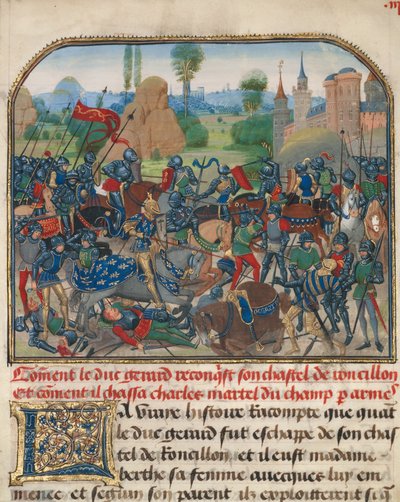 Coment le duc gerard reconq̃st son chastel de roncillon
Et coment il chassa charles martel du champ p armes
La vraye histoire racompte que quãt
le duc gerard fut eschappe de son chas
tel de roncillon et il eust madame
berthe sa femme avecques luy em
menee et segũn son parent ilz exploiterent